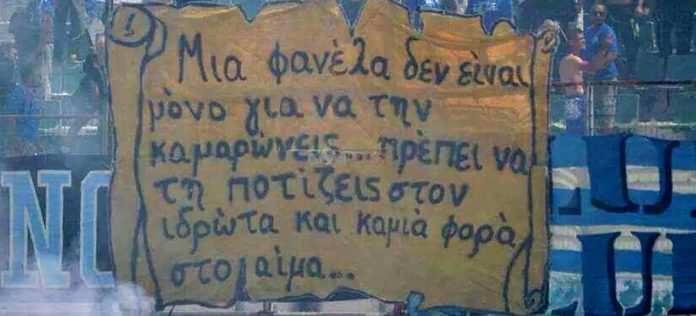 Μια φανέλα δεν είναι
μόνο για να την
καμαρώνεις... πρέπει να
τη ποτίζεις στον
ιδρώτα και καμιά φορά
στο αίμα...
NO